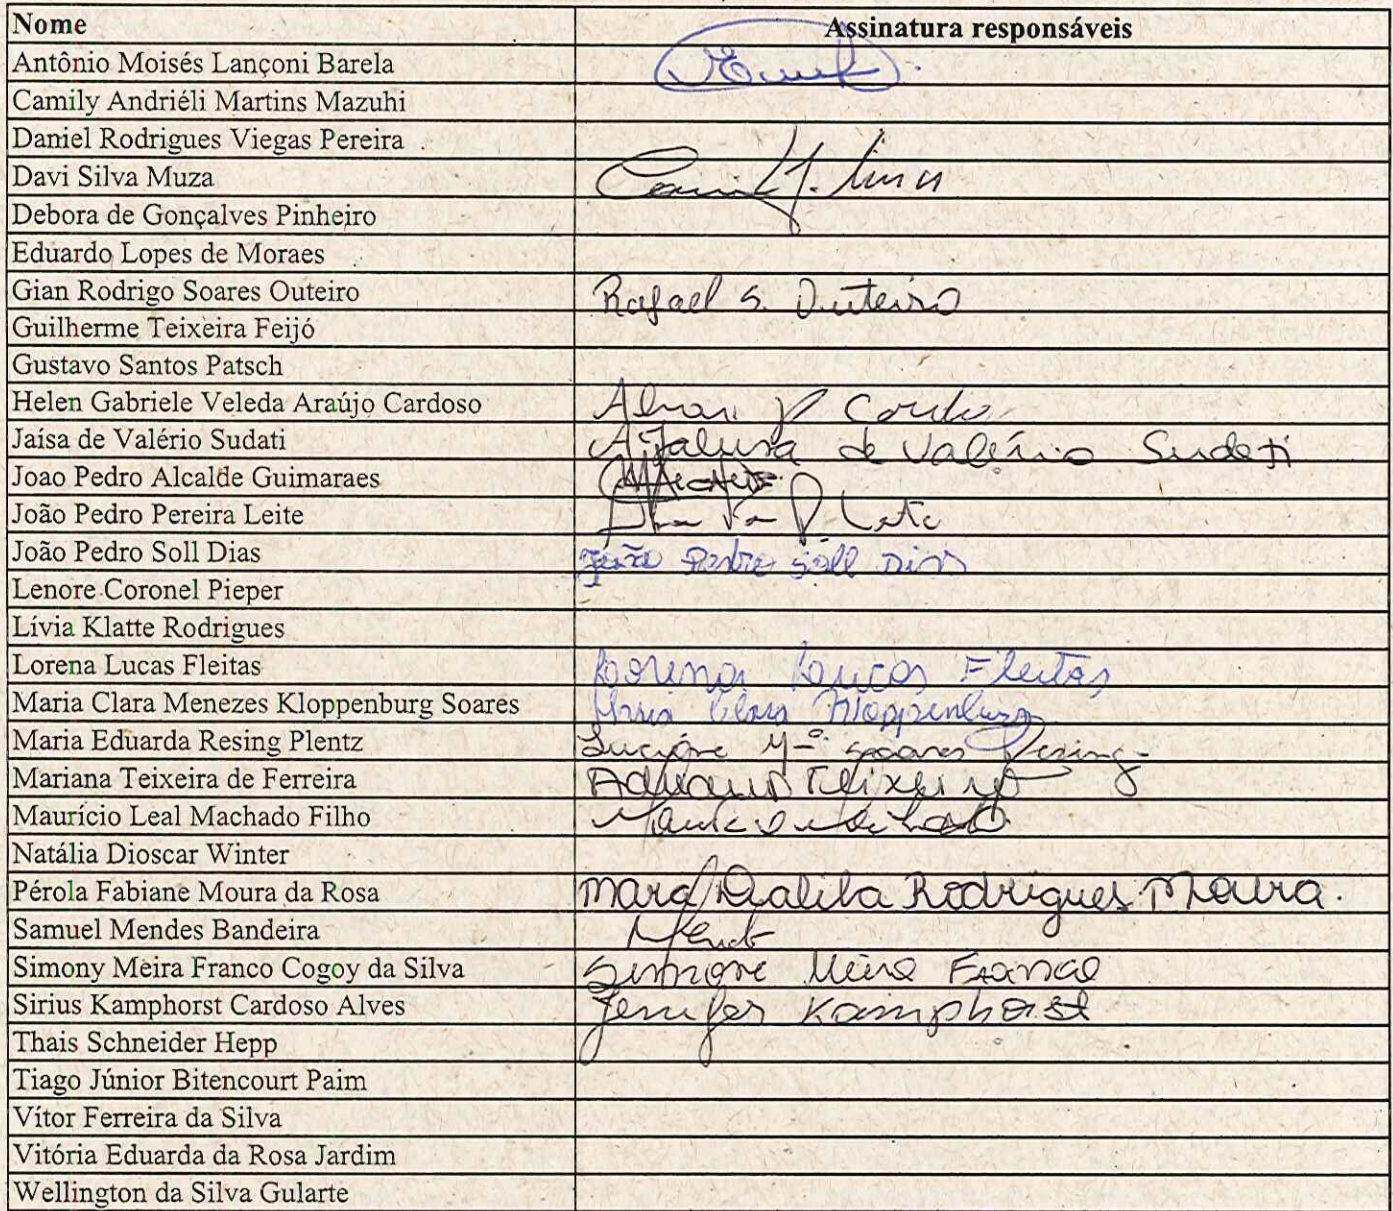 Nome Assinatura responsáveis
Antônio Moisés Lançoni Barela
Camily Andriéli Martins Mazuhi
Daniel Rodrigues Viegas Pereira
Davi Silva Muza
Debora de Gonçalves Pinheiro
Eduardo Lopes de Moraes
Gian Rodrigo Soares Outeiro Rafael S. Outeiro
Guilherme Teixeira Feijó
Gustavo Santos Patsch
Helen Gabriele Veleda Araújo Cardoso
Jaisa de Valério Sudati de Valério Sudati
Joao Pedro Alcalde Guimaraes
João Pedro Pereira Leite Leite
João Pedro Soll Dias João Pedro Soll Dias
Lenore Coronel Pieper
Lívia Klatte Rodrigues
Lorena Lucas Fleitas Lorena Lucas Fleitas
Maria Clara Menezes Kloppenburg Soares Maria Clara Kloppenburg
Maria Eduarda Resing Plentz Soares Resing
Mariana Teixeira de Ferreira Adriana Teixeira
Maurício Leal Machado Filho
Natália Dioscar Winter
Pérola Fabiane Moura da Rosa Mara Dalila Rodrigues Moura.
Samuel Mendes Bandeira
Simony Meira Franco Cogoy da Silva Simone Meira Franco
Sirius Kamphorst Cardoso Alves Jenifer Kamphorst
Thais Schneider Hepp
Tiago Júnior Bitencourt Paim
Vítor Ferreira da Silva
Vitória Eduarda da Rosa Jardim
Wellington da Silva Gularte